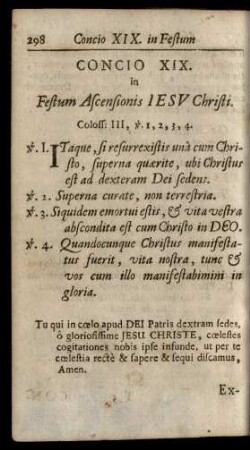 298 Concio XIX. in Festum
CONCIO XIX.
in
Festum Ascensionis IESV Christi.
Coloss: III, ℣. 1, 2, 3, 4.
℣. I. ITaque, si resurrexistis unà cum Chri-
sto, superna quærite, ubi Christus
est ad dexteram Dei sedens.
℣. 2. Superna curate, non terrestria.
℣. 3. Siquidem emortui estis, & vita vestra
abscondita est cum Christo in DEO.
℣. 4. Quandocunque Christus manifesta-
tus fuerit, vita nostra, tunc &
vos cum illo manifestabimini in
gloria.
Tu qui in cœlo apud DEI Patris dextram sedes,
ô gloriosissime JESU CHRISTE, cœlestes
cogitationes nobis ipse infunde, ut per te
cœlestia rectè & sapere & sequi discamus,
Amen.
Ex-